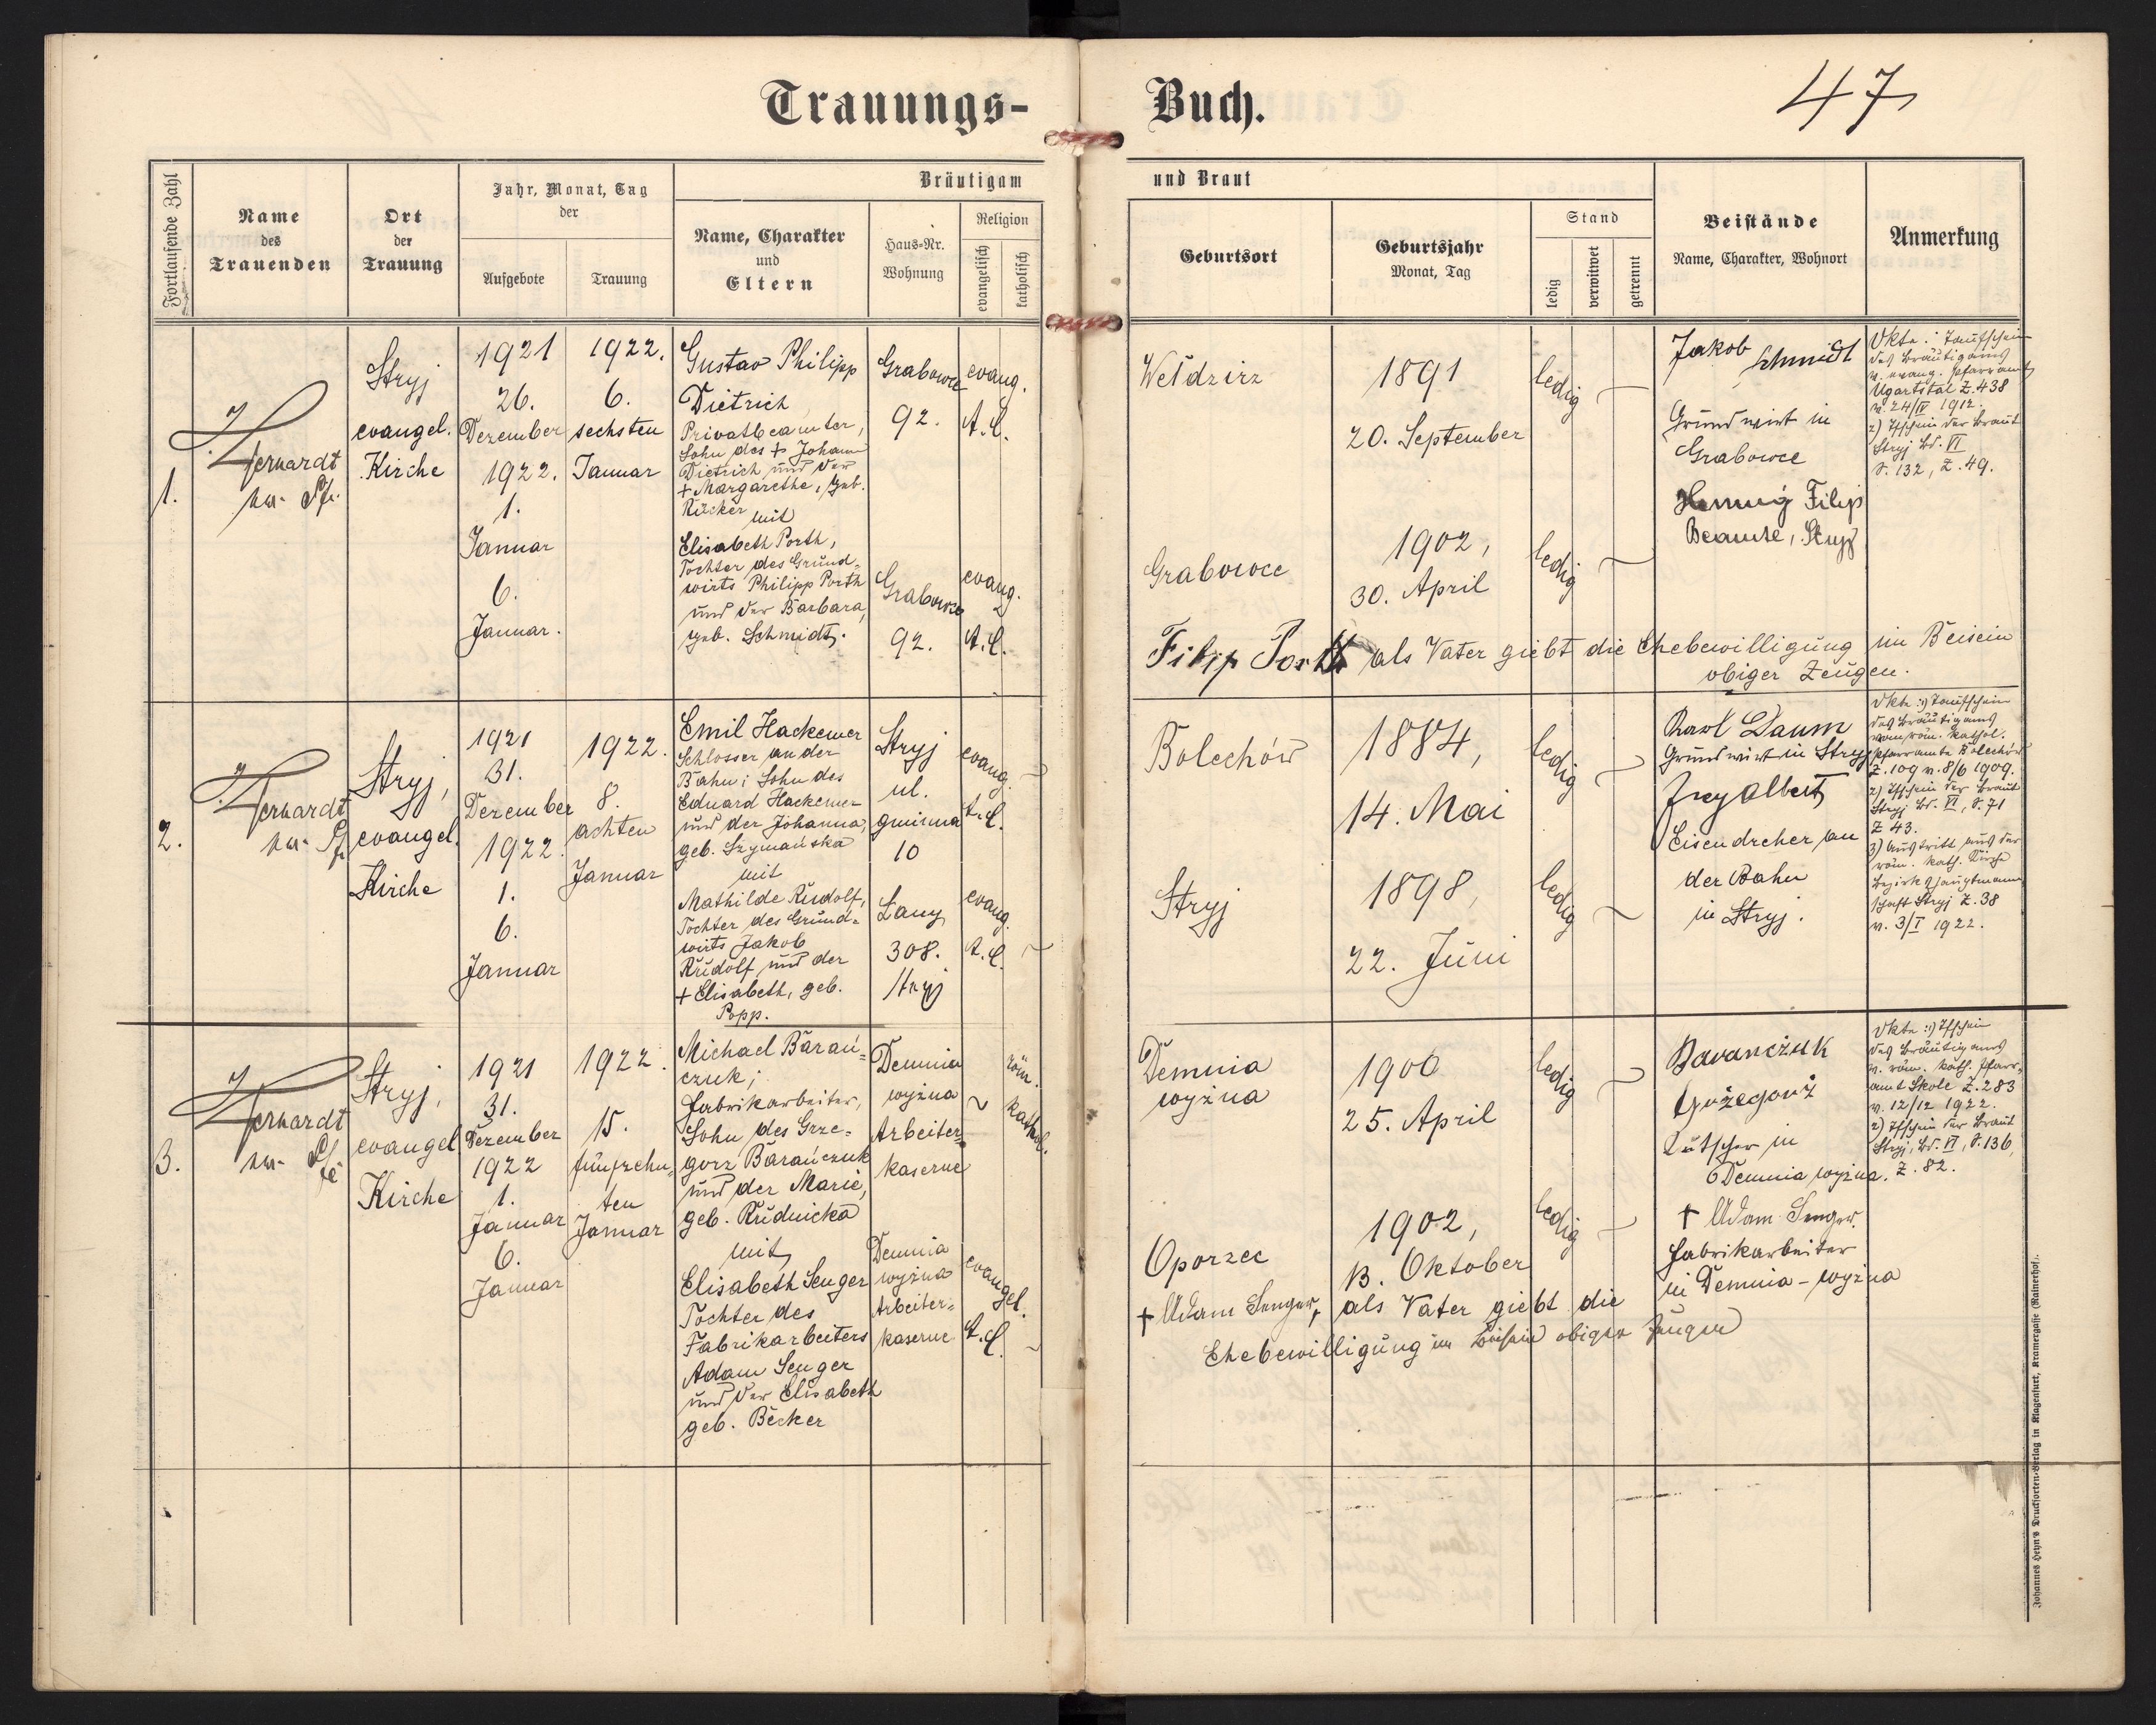 Trauungs-
Buch.
47
Fortlaufende Zahl
Name
des
Trauenden
Ort
der
Trauung
Jahr, Monat, Tag
der
Aufgebote
Trauung
Bräutigam
Name, Charakter
und
Eltern
Haus-Nr.
Wohnung
Religion
evangelisch
katholisch
und Braut
Geburtsort
Geburtsjahr
Monat, Tag
Stand
ledig
verwitwet
getrennt
Beistände
Name, Charakter, Wohnort
Anmerkung
1.
Stryj
evangel.
Kirche
1921
26.
Dezember
1922.
1.
Januar
6.
Januar.
1922.
6.
sechsten
Januar
Gustav Philipp
Dietrich
Privatbeamter,
Sohn des + Johann
Dietrich und der
+ Margarethe, geb.
Rücker
mit
Elisabeth Porth,
Tochter des Grund-
wirts Philipp Porth
und der Barbara,
geb. Schmidt.
Grabowce
92.
evang.
A.C.
Grabowce
92.
evang.
A.C.
Wełdzirz
1891
20. September
ledig
Grabowce
1902,
30. April
ledig
Jakob
Schmidt
Grundwirt in
Grabowce
Filip
Beamte, Stryj
Taufschein
des Bräutigams
v. evang. Pfarramt
Ugartstal Z. 438
v. 24/IV 1912.
2) Tfschein der Braut
Stryj Bd. VI
S. 132, Z. 49.
Filip Porth als Vater giebt die Ehebewilligung im Beisein
obiger Zeugen.
2.
Stryj,
evangel.
Kirche
1921
31.
Dezember
1922.
1.
6.
Januar
1922.
8.
achten
Januar
Emil Hackemer
Schlosser an der
Bahn; Sohn des
Eduard Hackemer
und der Johanna,
geb. Szymańska
mit
Mathilde Rudolf,
Tochter des Grund-
wirts Jakob
Rudolf und der
+ Elisabeth, geb.
Popp.
Stryj
ul.
gminna
10
evang.
A.C.
Łany
308.
Stryj
evang.
A.C.
Bolechów
1884,
14. Mai
ledig
Stryj
1898,
22. Juni
ledig
Karl Daum
Grundwirt in Stryj
Frey Albert
Eisendreher an
der Bahn
in Stryj.
Taufschein
des Bräutigams
vom röm. kathol.
Pfarramte Bolechów
Z. 109 v. 8/6 1909.
2) Tfschein der Braut
Stryj Bd. VI, S. 71
Z 43.
3) Austritt aus der
röm. kath. Kirche
Bezirkshauptmann
schaft Stryj Z. 38
v. 3/I 1922.
3.
Stryj,
evangel
Kirche
1921
31.
Dezember
1922
1.
Januar
6.
Januar
1922.
15.
fünfzehn-
ten
Januar
Michael Barań-
czuk;
Fabrikarbeiter,
Sohn des Grze-
gorz Barańczuk
und der Marie,
geb. Rudnicka
mit
Elisabeth Senger
Tochter des
Fabrikarbeiters
Adam Senger
und der Elisabeth
geb. Becker
Demnia
wyżna
Arbeiter-
kaserne
röm.
kathol.
Demnia
wyżna
Arbeiter-
kaserne
evangel.
A.C.
Demnia
wyżna
1900
25. April
ledig
Oporzec
1902,
13. Oktober
ledig
Baranczuk
Kutscher in
Demnia wyżna.
+ Adam Senger,
Fabrikarbeiter
in Demnia-wyżna
Tfschein
des Bräutigams
v. röm. kath. Pfarr-
amt Skole Z. 283
v. 12/12 1922.
2) Tfschein der Braut
Stryj, Bd. VI, S. 136,
Z. 82.
+ Adam Senger + als Vater giebt die
Ehebewilligung im Beisein obiger Zeugen
Johannes Heyn's Drucksorten-Verlag in Klagenfurt, Kramergasse (Rainerhof).